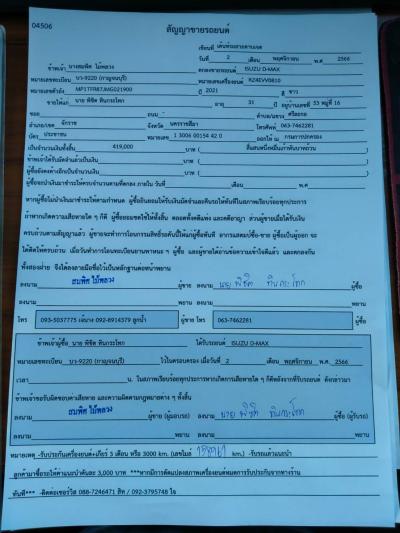 04506
สัญญาขายรถยนต์
เขียนที่ เต็นท์รถสายตาแจง
วันที่ 2 เดือน พฤศจิกายน พ.ศ 2566
ข้าพเจ้า นางสมพิศ ไม้หลวง ตกลงขายรถยนต์ ISUZU D-MAX
หมายเลขทะเบียน บว-9220 (กาญจนบุรี) หมายเลขเครื่อง RZ4EVV0810
หมายเลขตัวถัง MP1TFR87JMG021900 ปี 2021 สี ขาว
ขายให้แก่ นาย พิชิต หินกระโทก อายุ 31 ปี อยู่บ้านเลขที่ 53 หมู่ที่ 16
ซอย ถนน ตำบล/แขวง ศรีละกอ
อำเภอ/เขต จักราช จังหวัด นครราชสีมา โทรศัพท์ 063-7462281
บัตร ประชาชน หมายเลข 1 3006 00154 42 0 ออกให้ ณ กรมการปกครอง
เป็นจำนวนเงินทั้งสิ้น 419,000 บาท ( สี่แสนหนึ่งหมื่นเก้าพันบาทถ้วน )
ข้าพเจ้าได้รับมัดจำแล้วเป็นเงิน บาท ( )
ผู้ซื้อยังคงค้างอีกเป็นจำนวนเงิน บาท ( )
ผู้ซื้อจะนำเงินมาชำระให้ครบจำนวนตามที่ตกลง ภายใน วันที่ เดือน พ.ศ
หากผู้ซื้อไม่นำเงินมาชำระให้ตามกำหนด ผู้ซื้อยินยอมให้ริบเงินมัดจำและคืนรถให้ทันทีในสภาพเรียบร้อยทุกประการ
ถ้าหากเกิดความเสียหายใด ๆ ก็ดี ผู้ซื้อยอมชดใช้ให้ทั้งสิ้น ตลอดทั้งคดีแพ่ง และคดีอาญา ส่วนผู้ขายเมื่อได้รับเงิน
ครบถ้วนตามสัญญาแล้ว ผู้ขายจะทำการโอนกรรมสิทธิ์รถคันนี้ให้แก่ผู้ซื้อทันที อากรแสตมป์ซื้อ-ขาย ผู้ซื้อเป็นผู้ออก จะ
ได้ติดให้ครบถ้วน เมื่อวันทำการโอนทะเบียนยานพาหนะ ฯ ผู้ซื้อ และผู้ขายได้อ่านข้อความเข้าใจดีแล้ว และตกลงกัน
ทั้งสองฝ่าย จึงได้ลงลายมือชื่อไว้เป็นหลักฐานต่อหน้าพยาน
ลงนาม สมพิศ ไม้หลวง ผู้ขาย ลงนาม นาย พิชิต หินกระโทก ผู้ซื้อ
ลงนาม พยาน ลงนาม พยาน
โทร 093-5037775 เจ้นาง 092-8914379 ลูกน้ำ ผู้ขาย โทร 063-7462281 ผู้ซื้อ
ข้าพเจ้าผู้ซื้อ นาย พิชิต หินกระโทก ได้รับรถยนต์ ISUZU D-MAX
หมายเลขทะเบียน บว-9220 (กาญจนบุรี) ไว้ในครอบครอง เมื่อวันที่ 2 เดือน พฤศจิกายน พ.ศ. 2566
เวลา น. ในสภาพเรียบร้อยทุกประการหากเกิดการเสียหายใด ๆ ก็ดีหลังจากที่รับรถยนต์ ดังกล่าวมา
ข้าพเจ้าจะรับผิดชอบค่าเสียหาย และความผิดตามกฎหมายต่าง ๆ ทั้งสิ้น
ลงนาม สมพิศ ไม้หลวง ผู้ขาย (ผู้มอบรถ) ลงนาม นาย พิชิต หินกระโทก ผู้ซื้อ (ผู้รับรถ)
ลงนาม พยาน ลงนาม พยาน
หมายเหตุ -รับประกันเครื่องยนต์+เกียร์ 3 เดือน หรือ 3000 km. (เลขไมล์ km.) -รับรถแล้วแนะนำ
ลูกค้ามาซื้อรถให้ค่าแนะนำคันละ 3,000 บาท ***หากมีการดัดแปลงสภาพเครื่องยนต์หมดการรับประกันจากทางร้าน
ทันที*** -ติดต่อเซอร์วิส 088-7246471 สิท / 092-3795748 ใจ